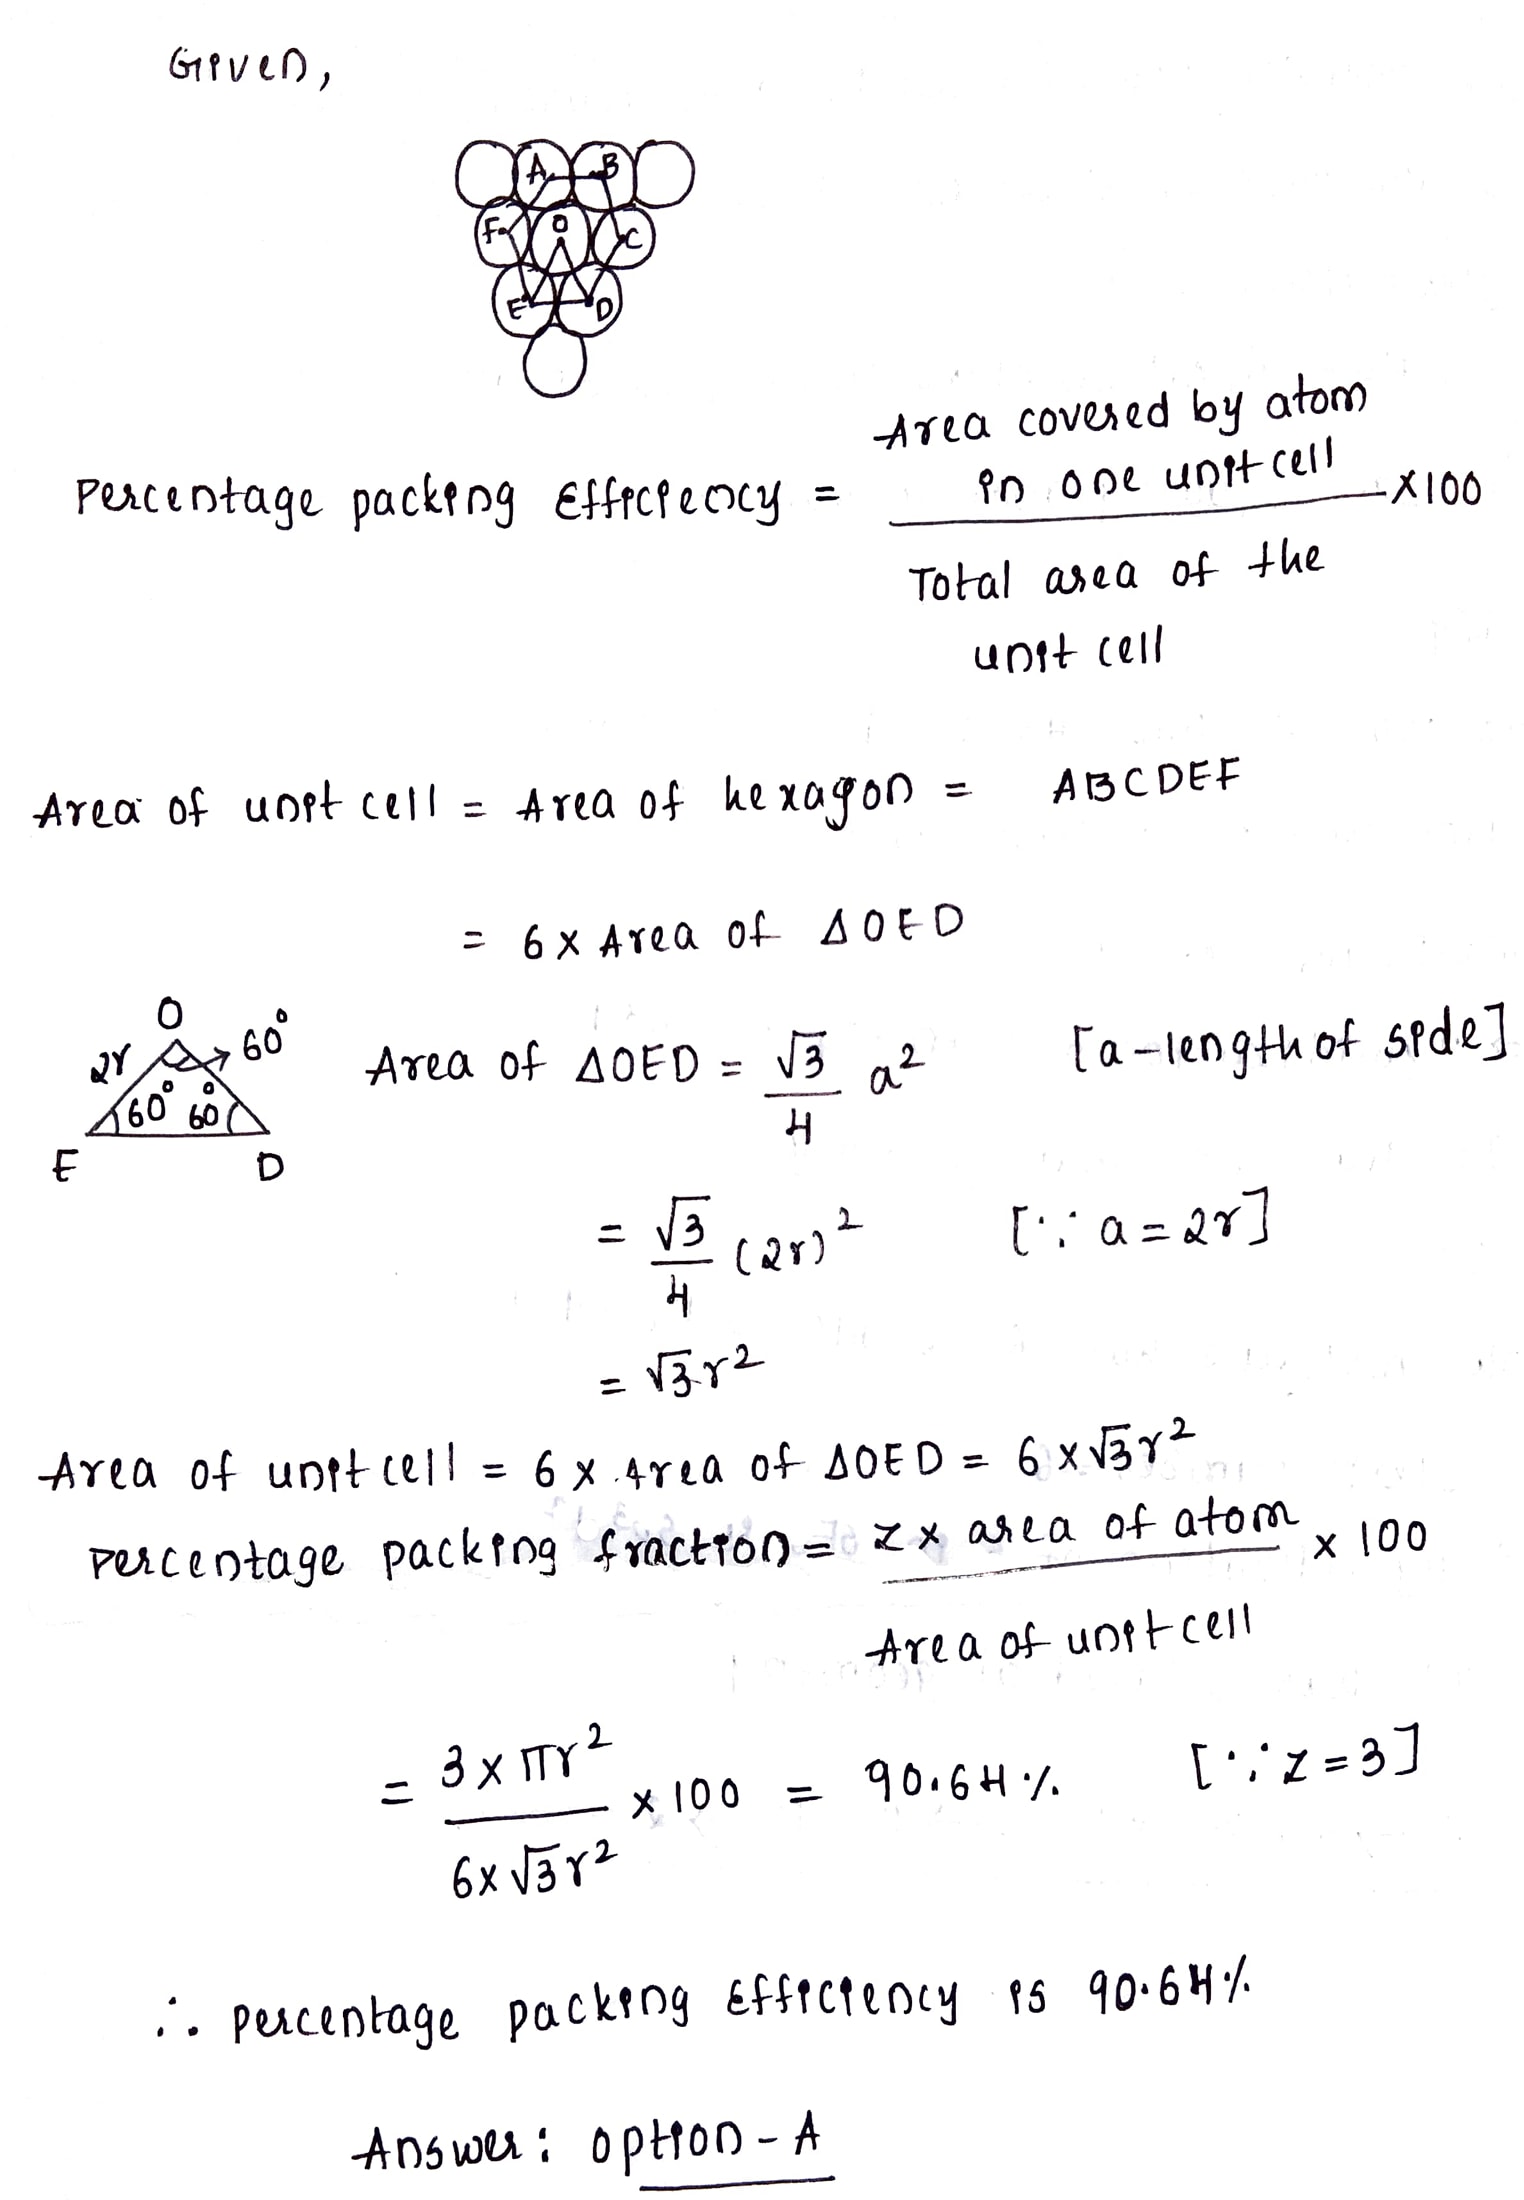 Given,
A B
F O C
E D
Area covered by atom
in one unit cell
Percentage packing Efficiency = ×100
Total area of the
unit cell
Area of unit cell = Area of hexagon = ABCDEF
= 6 × Area of ΔOED
O
2r 60°
60° 60°
E D
Area of ΔOED = √3/4 a² [a-length of side]
= √3/4 (2r)² [∵ a = 2r]
= √3r²
Area of unit cell = 6 × Area of ΔOED = 6 × √3r²
Percentage packing fraction = z × area of atom × 100
Area of unit cell
= 3 × πr² / 6×√3r² × 100 = 90.64% [∵ z = 3]
∴ percentage packing Efficiency is 90.64%
Answer: option - A